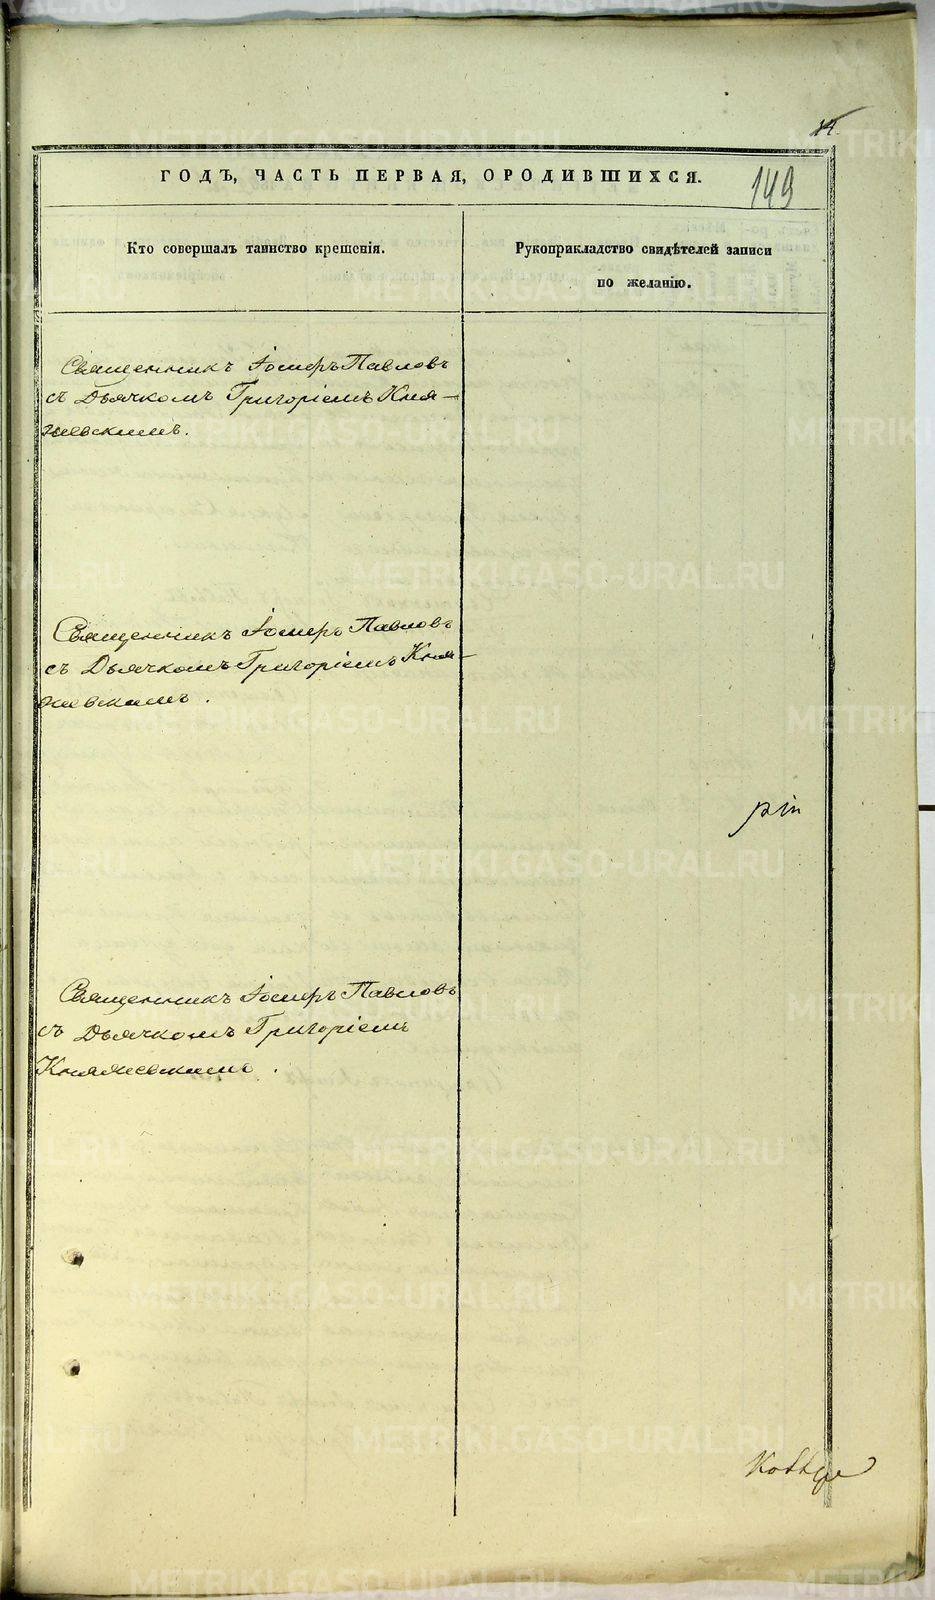 149
ГОДЪ, ЧАСТЬ ПЕРВАЯ, ОРОДИВШИХСЯ.
Кто совершалъ таинство крещенія.
Рукоприкладство свидѣтелей записи
по желанію.
Священникъ Іосифъ Павловъ
съ Дьячкомъ Григоріемъ Кня-
жевскимъ.
Священникъ Іосифъ Павловъ
съ Дьячкомъ Григоріемъ Кня-
жевскимъ.
ріи
Священникъ Іосифъ Павловъ
съ Дьячкомъ Григоріемъ
Княжевскимъ.
METRIKI.GASO-URAL.RU